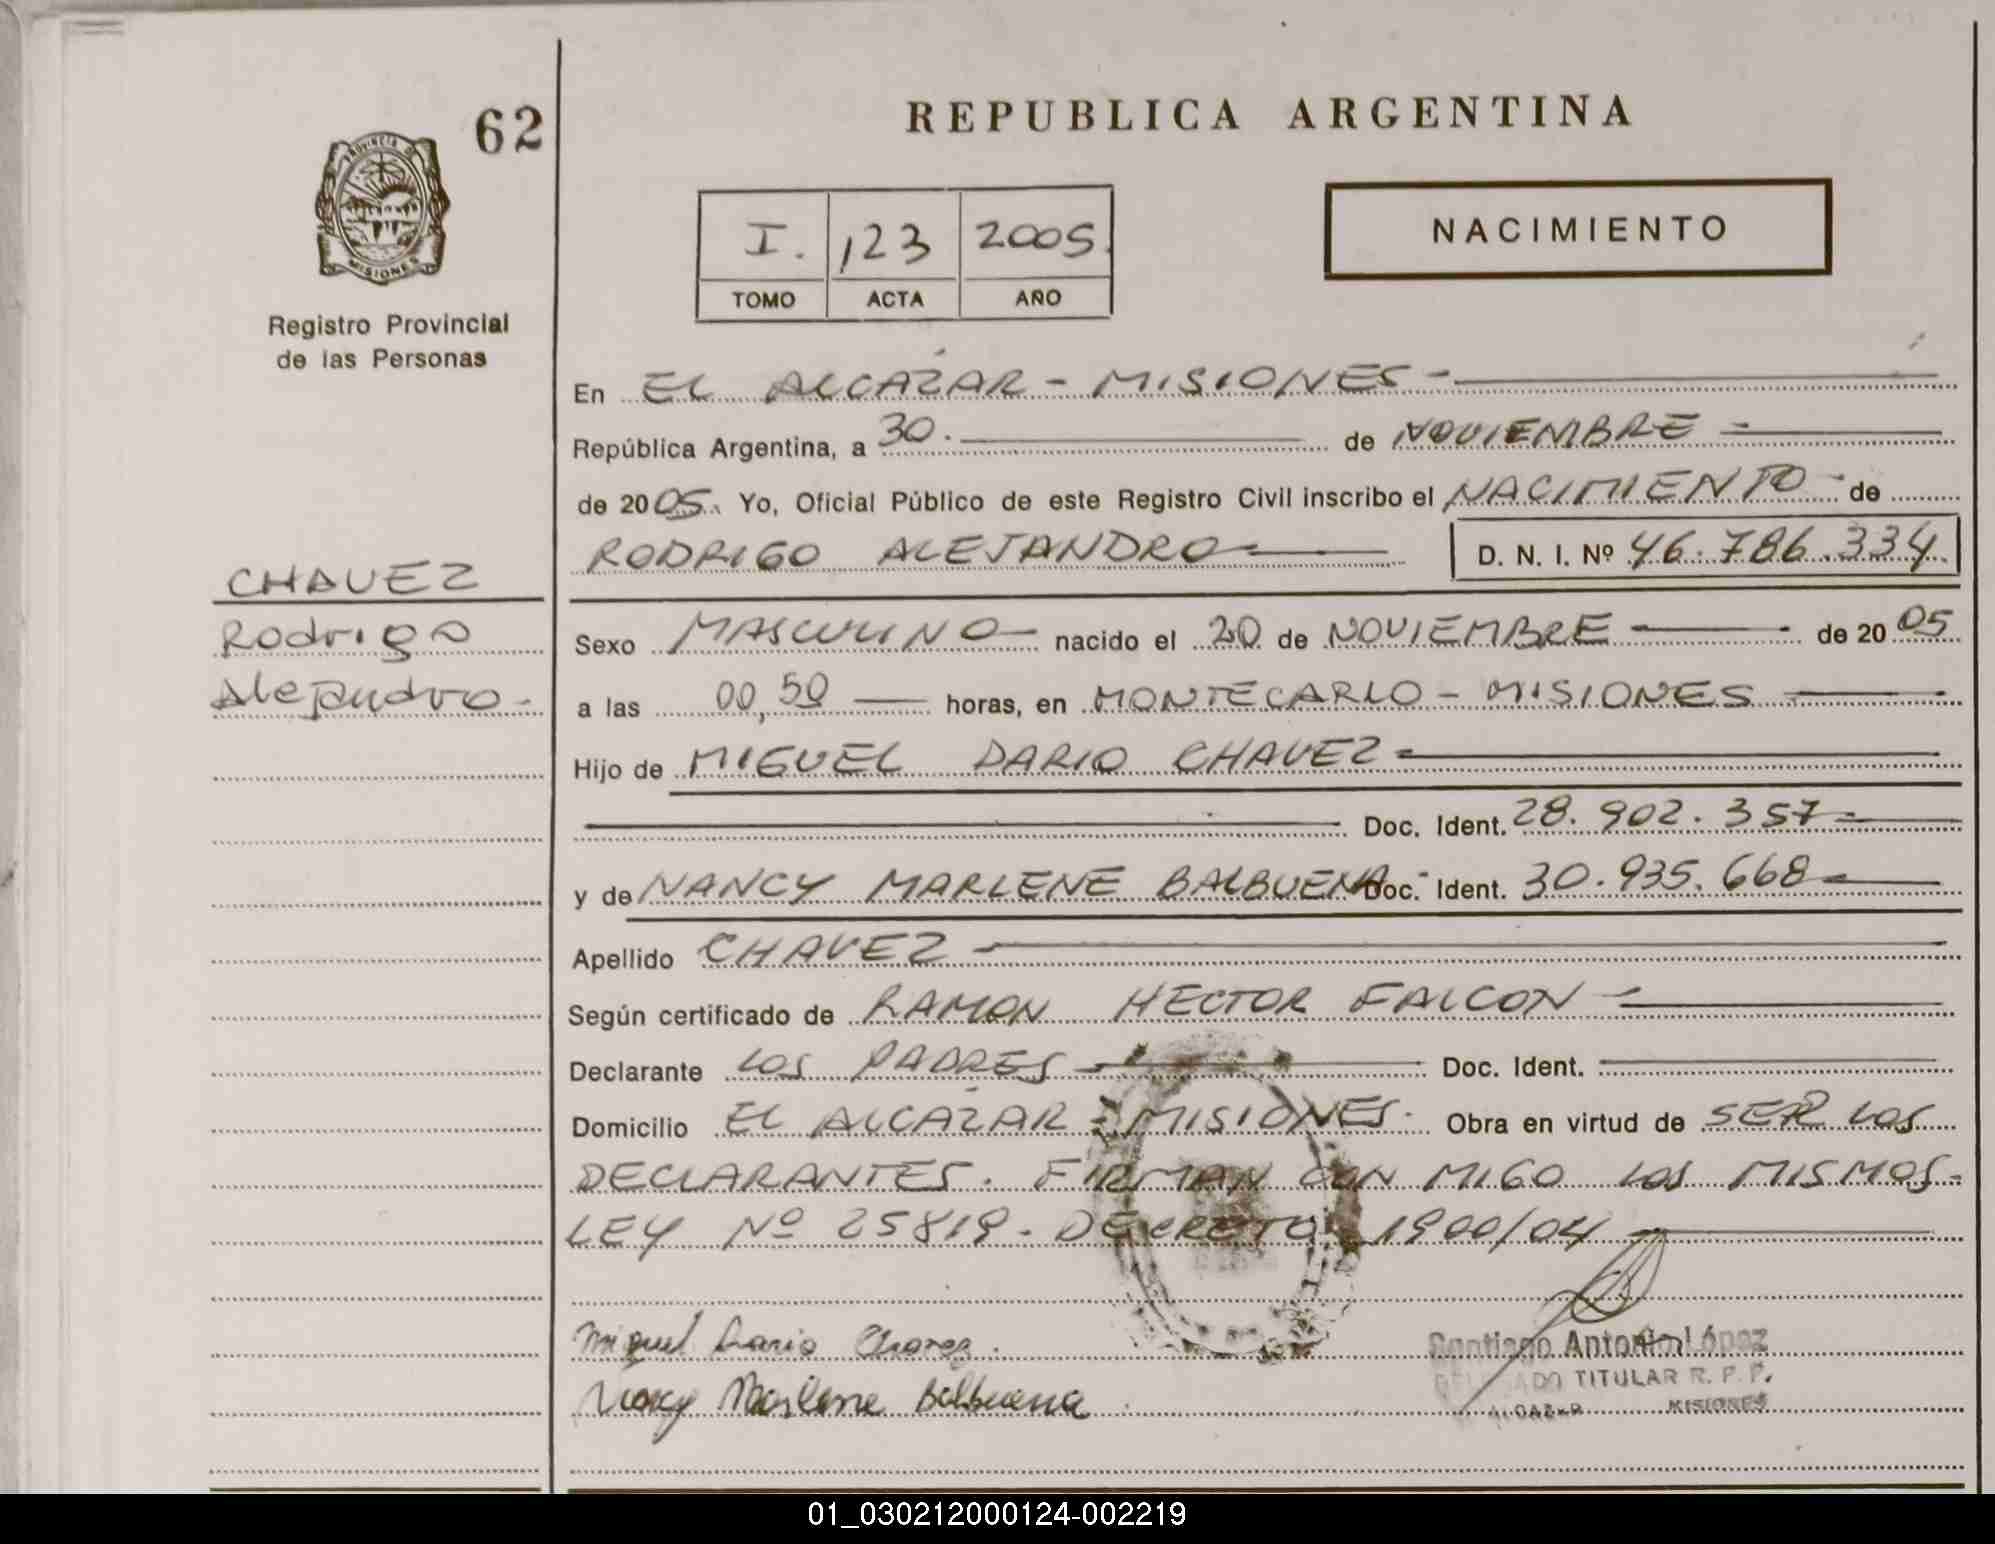 62
PROVINCIA DE
MISIONES
Registro Provincial
de las Personas
CHAVEZ
Rodrigo
Alejandro -
REPUBLICA ARGENTINA
I. 123 2005.
TOMO ACTA AÑO
NACIMIENTO
En EL ALCÁZAR - MISIONES -
República Argentina, a 30. de NOVIEMBRE -
de 2005. Yo, Oficial Público de este Registro Civil inscribo el NACIMIENTO - de
RODRIGO ALEJANDRO - D. N. I. Nº 46.786.334
Sexo MASCULINO - nacido el 20 de NOVIEMBRE - de 2005
a las 00,50 - horas, en MONTECARLO - MISIONES -
Hijo de MIGUEL DARIO CHAVEZ -
Doc. Ident. 28.902.357 -
y de NANCY MARLENE BALBUENA - Doc. Ident. 30.935.668 -
Apellido CHAVEZ -
Según certificado de RAMON HECTOR FALCON -
Declarante LOS PADRES - Doc. Ident.
Domicilio EL ALCÁZAR - MISIONES - Obra en virtud de SER LOS
DECLARANTES. FIRMAN CON MIGO LOS MISMOS -
LEY Nº 25819 - DECRETO 1900/04 -
Miguel Dario Chavez.
Nancy Marlene Balbuena
Santiago Antonio López
TITULAR R. P. P.
ALCAZAR MISIONES
01_030212000124-002219